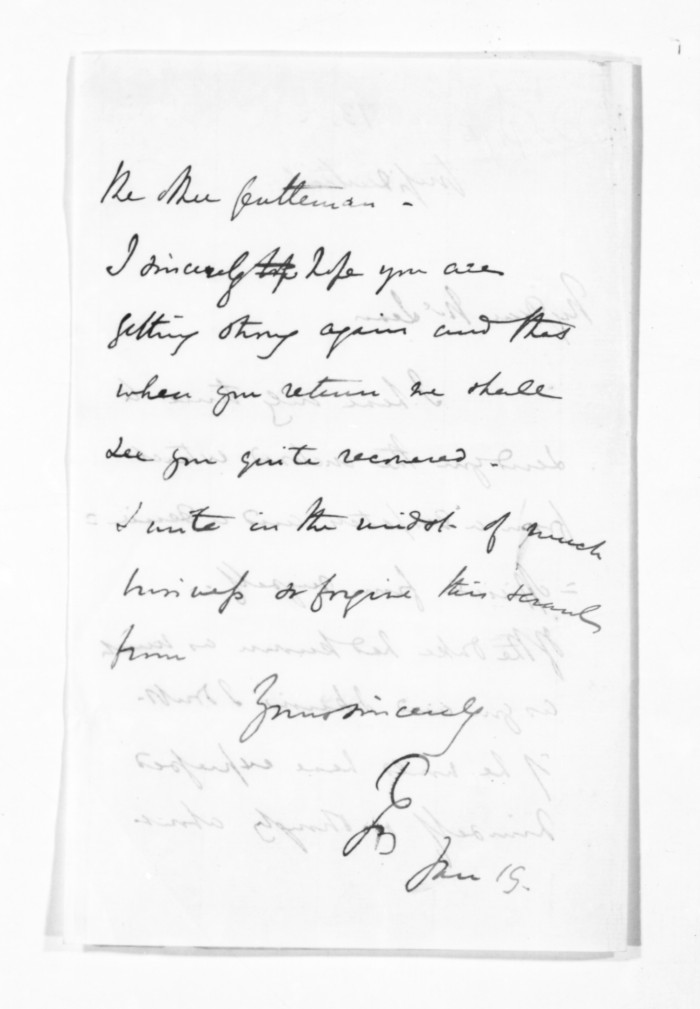 the other gentleman -
I sincerely hope you are
getting strong again and that
when you return we shall
see you quite recovered -
I write in the midst of much
business so forgive this scrawl
from
Yours sincerely
Jan 19.